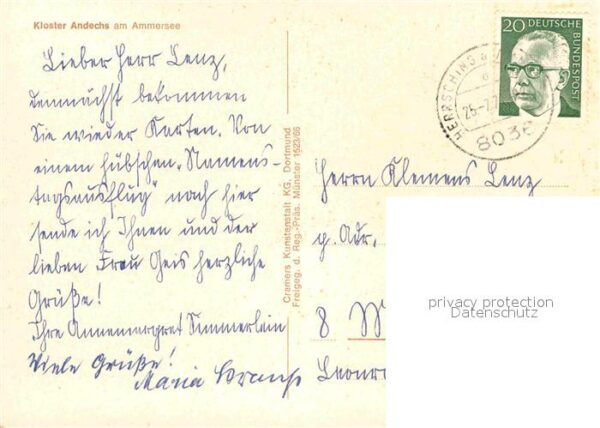 Kloster Andechs am Ammersee
Lieber Herr Lenz,
demnächst bekommen
Sie wieder Karten. Von
einem hübschen "Namens-
tagsausflug" nach hier
sende ich Ihnen und der
lieben Frau Geis herzliche
Grüße!
Ihre Annemargret Simmerlein
Viele Grüße!
Maria
Cramers Kunstanstalt KG, Dortmund
Freigeg. d. Reg.-Präs. Münster 1523/66
20 DEUTSCHE
BUNDESPOST
HERRSCHING
8036
Herrn Klemens Lenz
p. Adr.
8 M
Leonr
privacy protection
Datenschutz